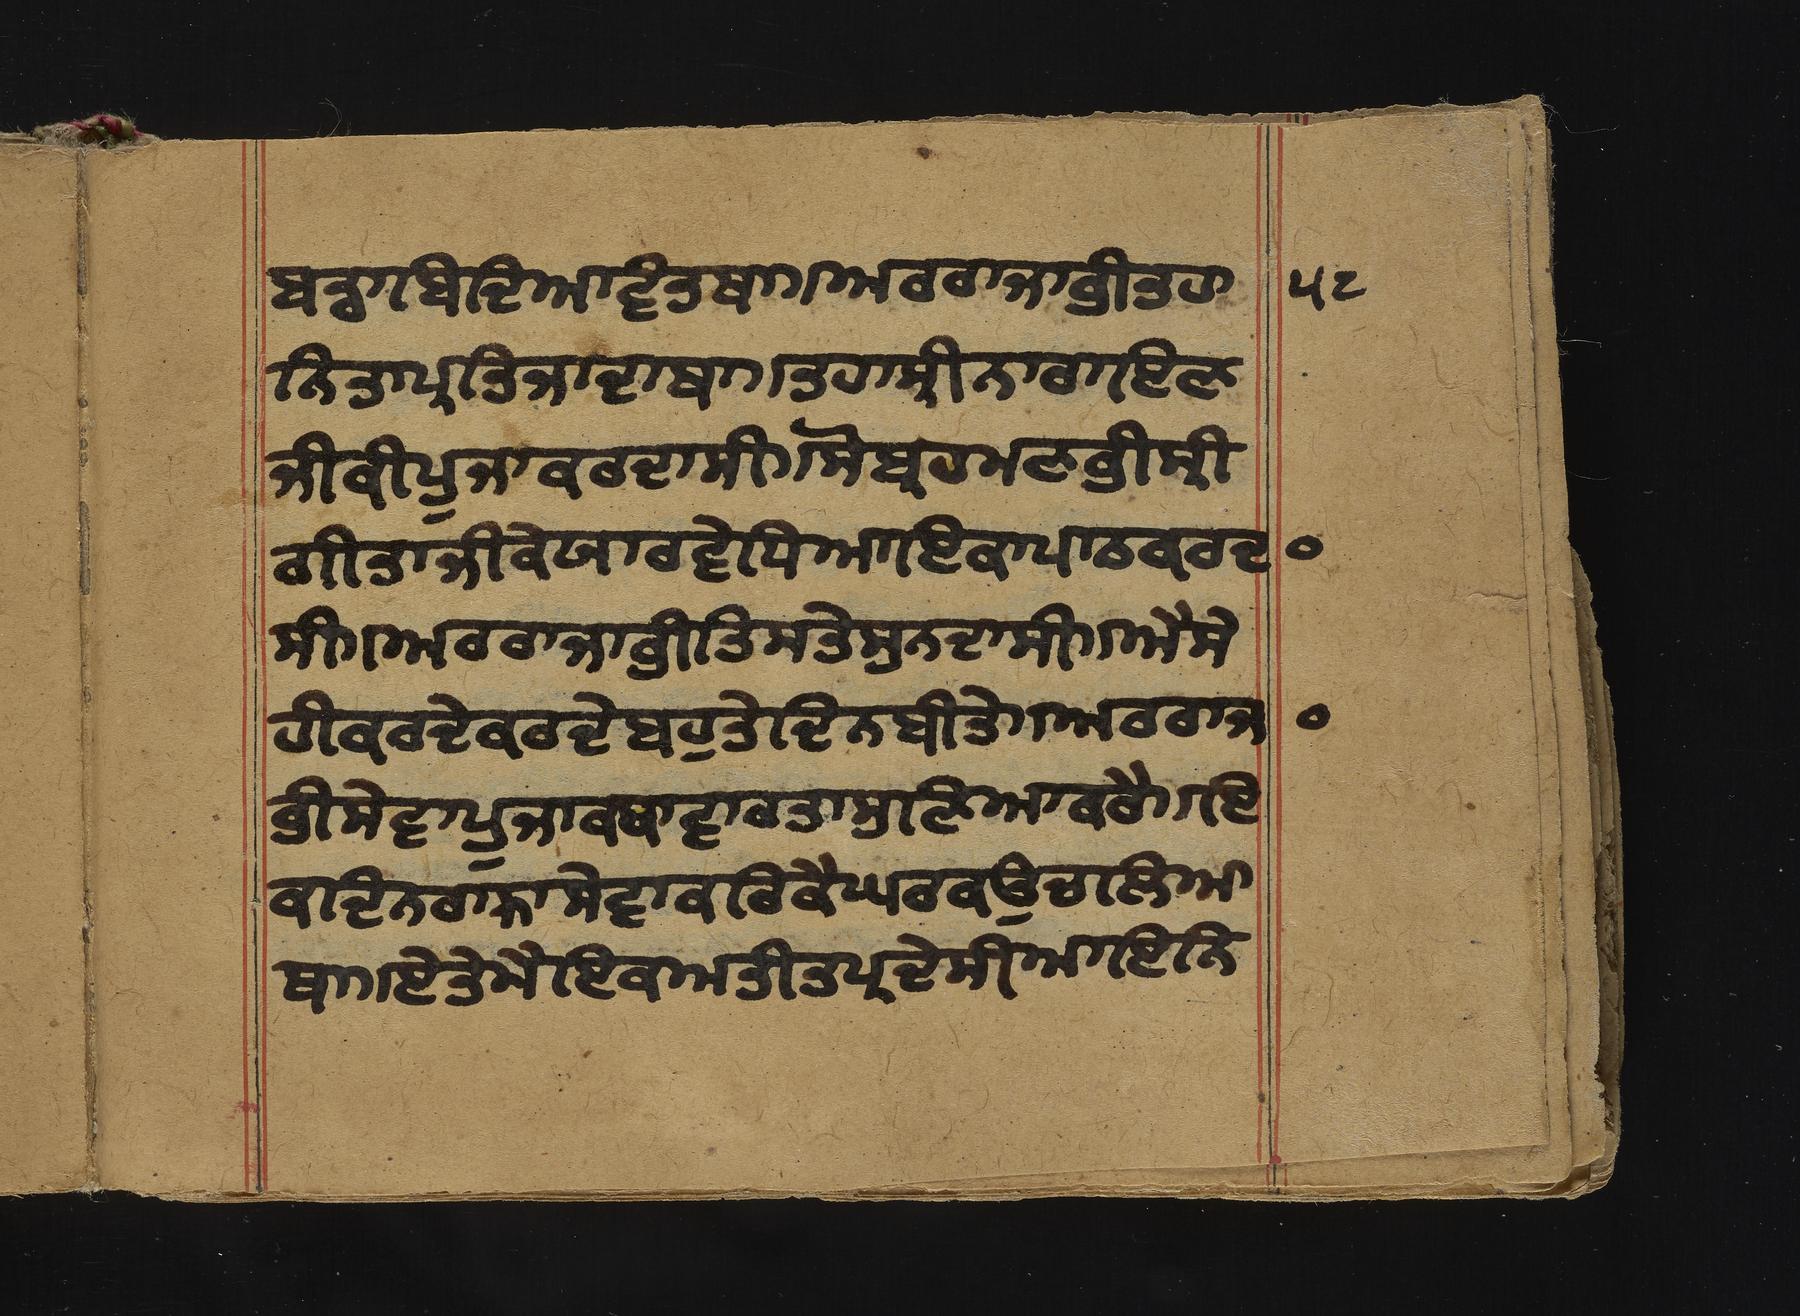 ਬਡਾਬਿਦਿਆਵੰਤਥਾ।ਅਰਰਾਜਾਭੀਤਹਾ ੫੮
ਨਿਤਾਪ੍ਰਤਿਜਾਦਾਥਾ।ਤਹਾਸ੍ਰੀਨਾਰਾਇਣ
ਜੀਕੀਪੂਜਾਕਰਦਾਸੀ।ਸੋਬ੍ਰਹਮਣਭੀਸ੍ਰੀ
ਗੀਤਾਜੀਕੇਯਾਰਵੇਧਿਆਇਕਾਪਾਠਕਰਦ੦
ਸੀ।ਅਰਰਾਜਾਭੀਤਿਸਤੇਸੁਨਦਾਸੀ।ਐਸੇ
ਹੀਕਰਦੇਕਰਦੇਬਹੁਤੇਦਿਨਬੀਤੇ।ਅਰਰਾਜ੦
ਭੀਸੇਵਾਪੂਜਾਕਥਾਵਾਰਤਾਸੁਣਿਆਕਰੈ।ਇ
ਕਦਿਨਰਾਜਾਸੇਵਾਕਰਿਕੈਘਰਕਉਚਲਿਆ
ਥਾ।ਏਤੇਮੈਇਕਅਤੀਤਪ੍ਰਦੇਸੀਆਇਨਿ